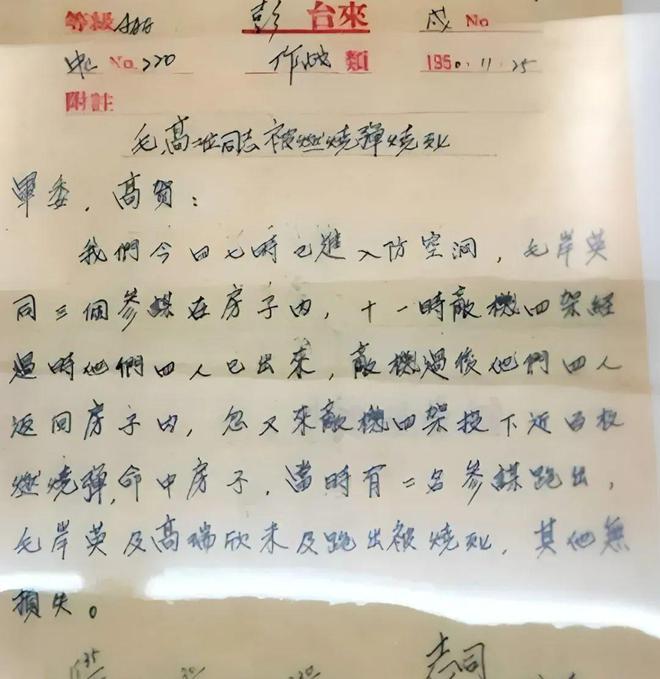 等級 AAA 彭 台來 戌 No
No. 220 作战 類 1950.11.25
附註
毛、高二位同志被燃燒彈燒死
軍委,高賀:
我們今日七時已進入防空洞,毛岸英
同三個參謀在房子內,十一時敵機四架經
過時他們四人已出來,敵機過後他們四人
返回房子內,忽又來敵機四架投下近百枚
燃燒彈,命中房子,當時有二名參謀跑出,
毛岸英及高瑞欣未及跑出被燒死,其他無
損失。
志司